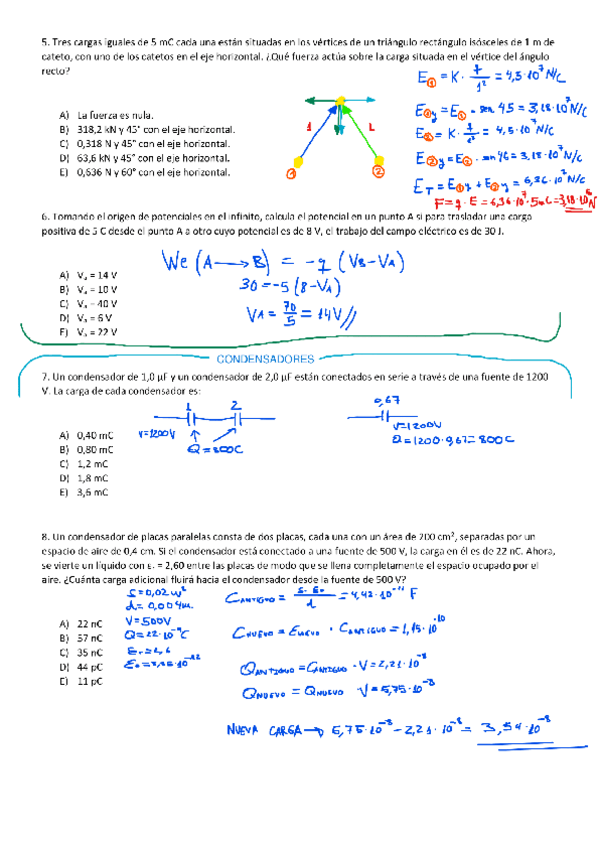 5. Tres cargas iguales de 5 mC cada una están situadas en los vértices de un triángulo rectángulo isósceles de 1 m de
cateto, con uno de los catetos en el eje horizontal. ¿Qué fuerza actúa sobre la carga situada en el vértice del ángulo
recto?
A) La fuerza es nula.
B) 318,2 kN y 45° con el eje horizontal.
C) 0,318 N y 45° con el eje horizontal.
D) 63,6 kN y 45° con el eje horizontal.
E) 0,636 N y 60° con el eje horizontal.
1 L
1 2
E① = K · q/1² = 4,5·10⁷ N/C
E①y = E① · sen 45 = 3,18·10⁷ N/C
= 4,5·10⁷ N/C
E②y = E② · sen 46 = 3,18·10⁷ N/C
E_T = E①y + E②y = 6,36·10⁷ N/C
F = q · E = 6,36·10⁷·5mC =
6. Tomando el origen de potenciales en el infinito, calcula el potencial en un punto A si para trasladar una carga
positiva de 5 C desde el punto A a otro cuyo potencial es de 8 V, el trabajo del campo eléctrico es de 30 J.
A) Vₐ = 14 V
B) Vₐ = 10 V
C) Vₐ = 40 V
D) Vₐ = 6 V
E) Vₐ = 22 V
We (A → B) = -q (VB - VA)
30 = -5 (8 - VA)
VA = 70/5 = 14V //
CONDENSADORES
7. Un condensador de 1,0 µF y un condensador de 2,0 µF están conectados en serie a través de una fuente de 1200
V. La carga de cada condensador es:
A) 0,40 mC
B) 0,80 mC
C) 1,2 mC
D) 1,8 mC
E) 3,6 mC
1 2
V=1200V
Q = 800C
0,67
V=1200V
Q = 1200·0,67 = 800C
8. Un condensador de placas paralelas consta de dos placas, cada una con un área de 200 cm², separadas por un
espacio de aire de 0,4 cm. Si el condensador está conectado a una fuente de 500 V, la carga en él es de 22 nC. Ahora,
se vierte un líquido con εᵣ = 2,60 entre las placas de modo que se llena completamente el espacio ocupado por el
aire. ¿Cuánta carga adicional fluirá hacia el condensador desde la fuente de 500 V?
A) 22 nC
B) 57 nC
C) 35 nC
D) 44 pC
E) 11 pC
S = 0,02 m²
d = 0,004m
V = 500V
Q = 22·10⁻⁹C
Er = 2,6
CANTIGUO = = 4,42·10⁻¹¹ F
CNUEVO = ENUEVO · CANTIGUO = 1,15·10⁻¹⁰
QANTIGUO = CANTIGUO · V = 2,21·10⁻⁸
QNUEVO = QNUEVO · V = 5,75·10⁻⁸
NUEVA CARGA → 5,75·10⁻⁸ - 2,21·10⁻⁸ = 3,54·10⁻⁸